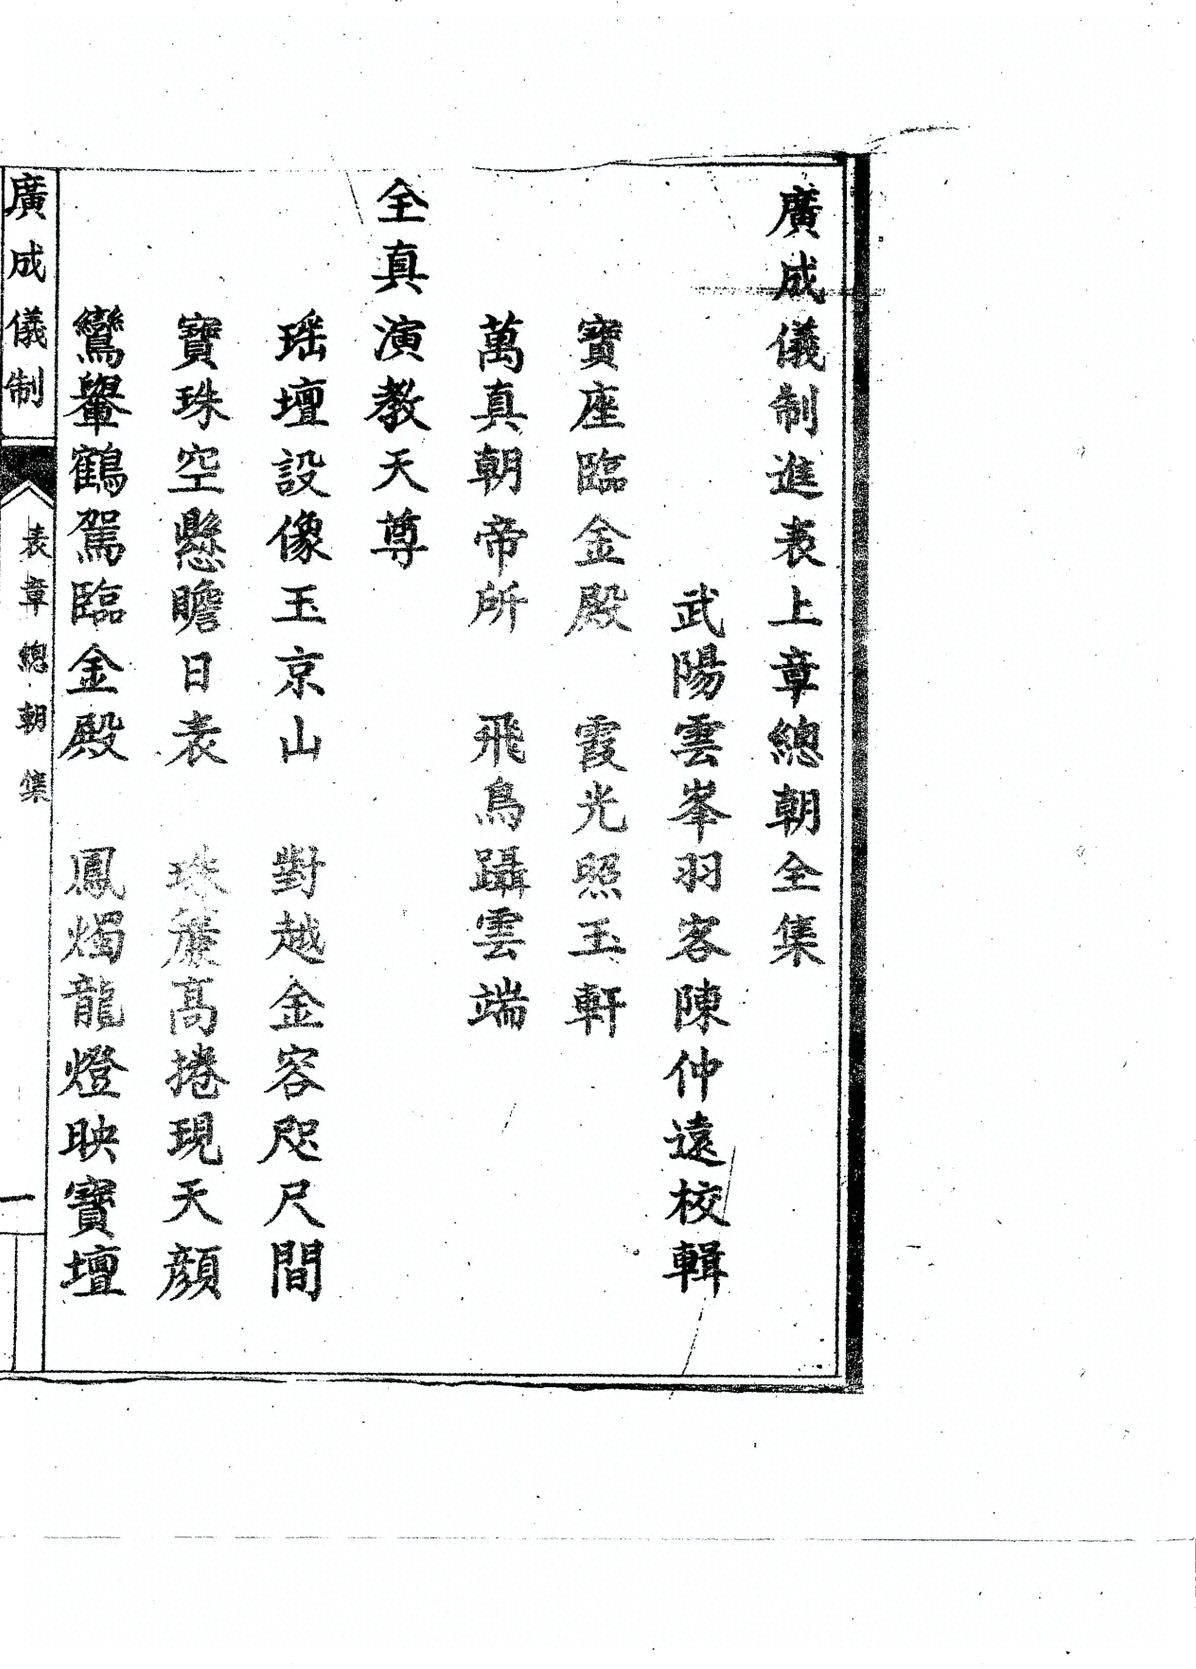 廣成儀制進表上章總朝全集
武陽雲峯羽客陳仲遠校輯
寶座臨金殿　霞光照玉軒
萬真朝帝所　飛舄躡雲端
全真演教天尊
瑶壇設像玉京山　對越金容咫尺間
寶珠空懸瞻日表　珠簾高捲現天顏
鸞轝鶴駕臨金殿　鳳燭龍燈映寶壇
廣成儀制　表章總朝　集　一